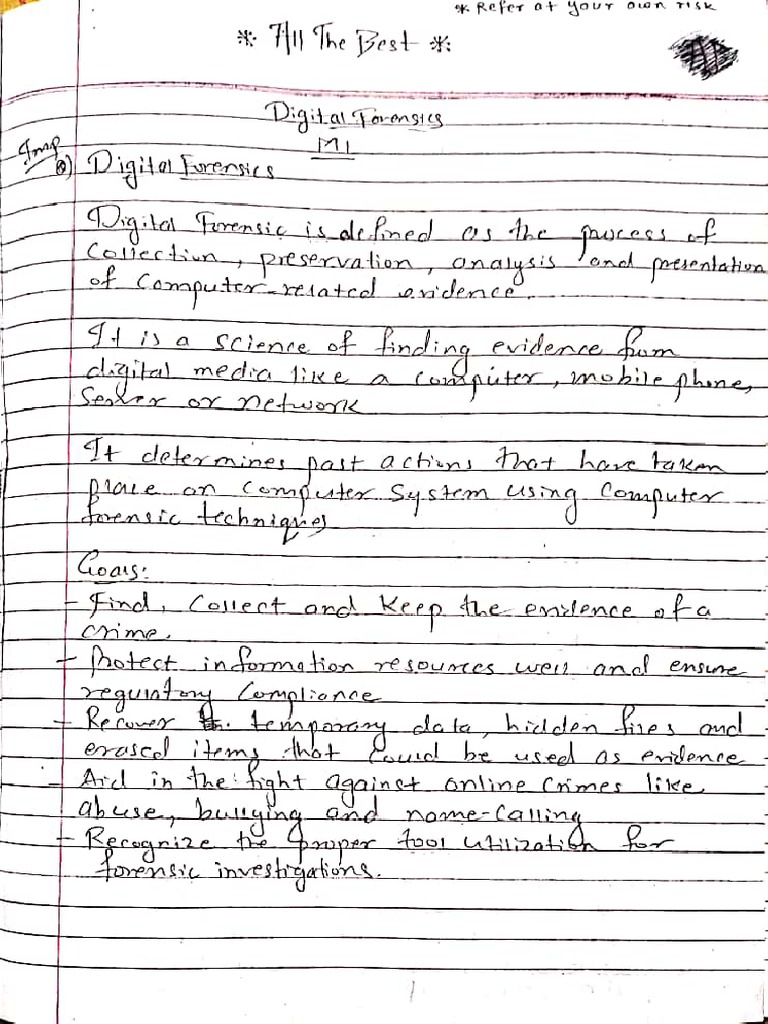 * Refer at your own risk
* 7/11 The Best *
Digital Forensics
M1
Imp
Q) Digital Forensics
Digital Forensic is defined as the process of
collection, preservation, analysis and presentation
of computer-related evidence.
It is a science of finding evidence from
digital media like a computer, mobile phone,
Server or network
It determines past actions that have taken
place on computer system using computer
forensic techniques
Goals:
- Find, Collect and Keep the evidence of a
crime.
- Protect information resources well and ensure
regulatory compliance
- Recover temporary data, hidden files and
erased items that could be used as evidence
- Aid in the fight against online crimes like
abuse, bullying and name-calling
- Recognize the proper tool utilization for
forensic investigations.
1